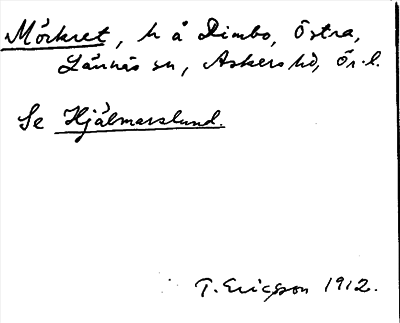 Mörkret, h å Dimbo, Östra,
Lännäs sn, Askers hd, Ör. l.
Se Hjälmarslund.
T. Ericsson 1912.